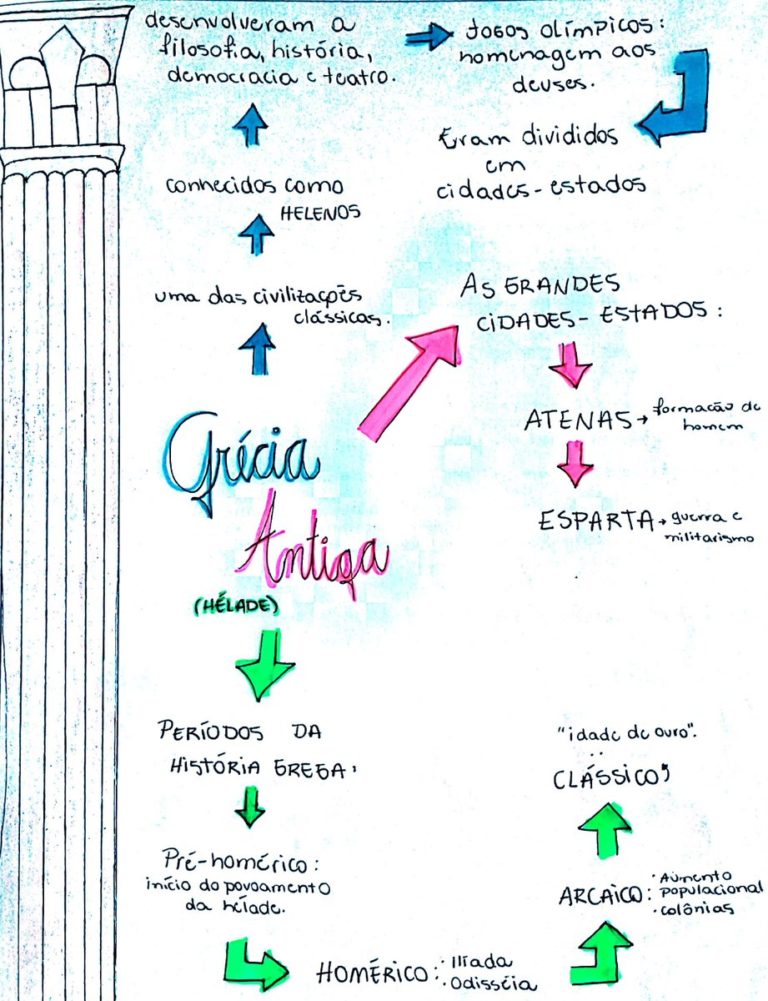 desenvolveram a
filosofia, história,
democracia e teatro.
Jogos olímpicos:
homenagem aos
deuses.
Eram divididos
em
cidades-estados
conhecidos como
HELENOS
uma das civilizações
clássicas.
AS GRANDES
CIDADES-ESTADOS:
ATENAS → formação do
homem
ESPARTA → guerra e
militarismo
Grécia
Antiga
(HÉLADE)
PERÍODOS DA
HISTÓRIA GREGA,
Pré-homérico:
início do povoamento
da hélade.
HOMÉRICO: · Ilíada
· Odisséia
ARCAICO: · Aumento
populacional
· colônias
"idade de ouro".
CLÁSSICO,